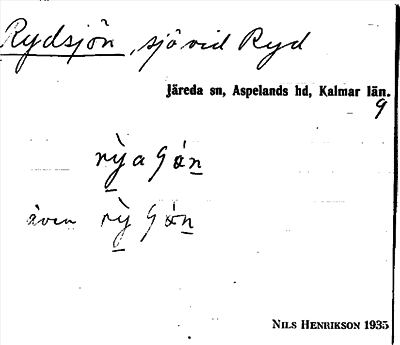 Rydsjön, sjö vid Ryd
Järeda sn, Aspelands hd, Kalmar län.
9
även
NILS HENRIKSON 1935